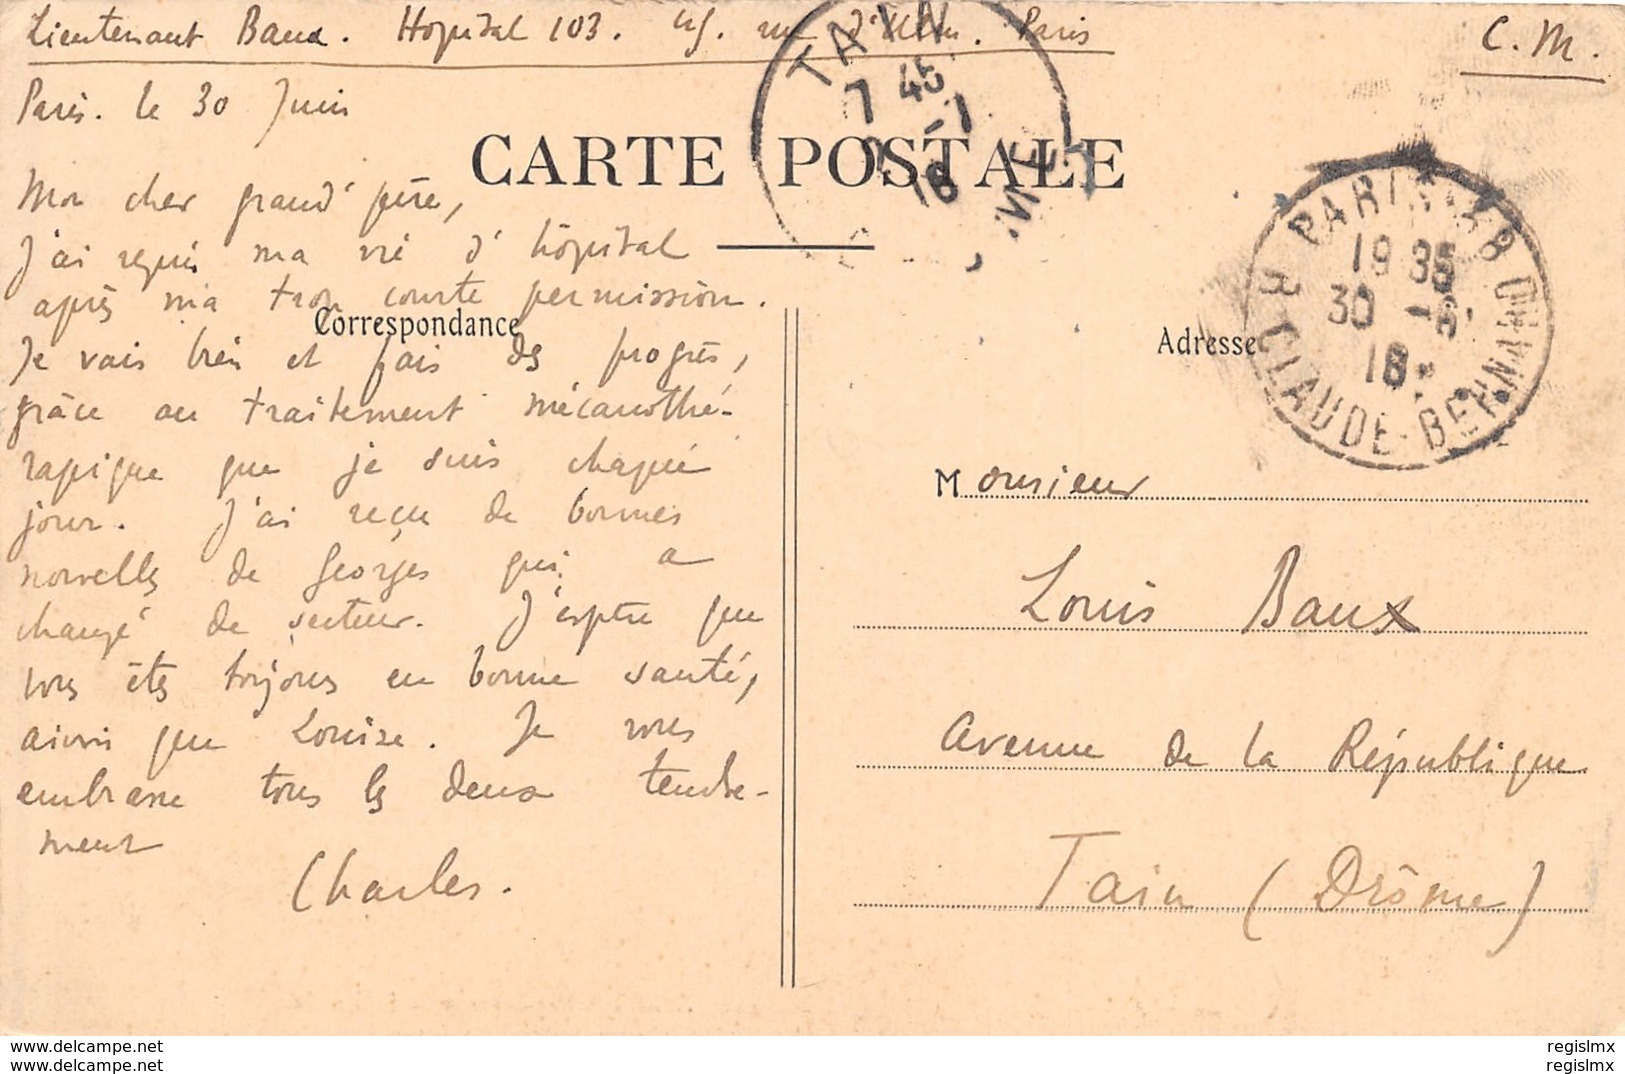 Lieutenant Baux. Hôpital 103. 45. rue d'Ulm. Paris
C. M.
Paris. le 30 Juin
CARTE POSTALE
Mon cher grand'père,
J'ai repris ma vie d'hôpital
après ma trop courte permission.
Correspondance
Je vais bien et fais des progrès,
grâce au traitement mécanothé-
rapique que je suis chaque
jour. J'ai reçu de bonnes
nouvelles de Georges qui a
changé de secteur. J'espère que
vous êtes toujours en bonne santé,
ainsi que Louise. Je vous
embrasse tous les deux tendre-
ment
Charles.
TAIN
7 45
1
18
PARIS 48
19 35
30 -6
18
R. CLAUDE-BERNARD
Adresse
Monsieur
Louis Baux
Avenue de la République
Tain (Drôme)
www.delcampe.net
regislmx
www.delcampe.net
regislmx